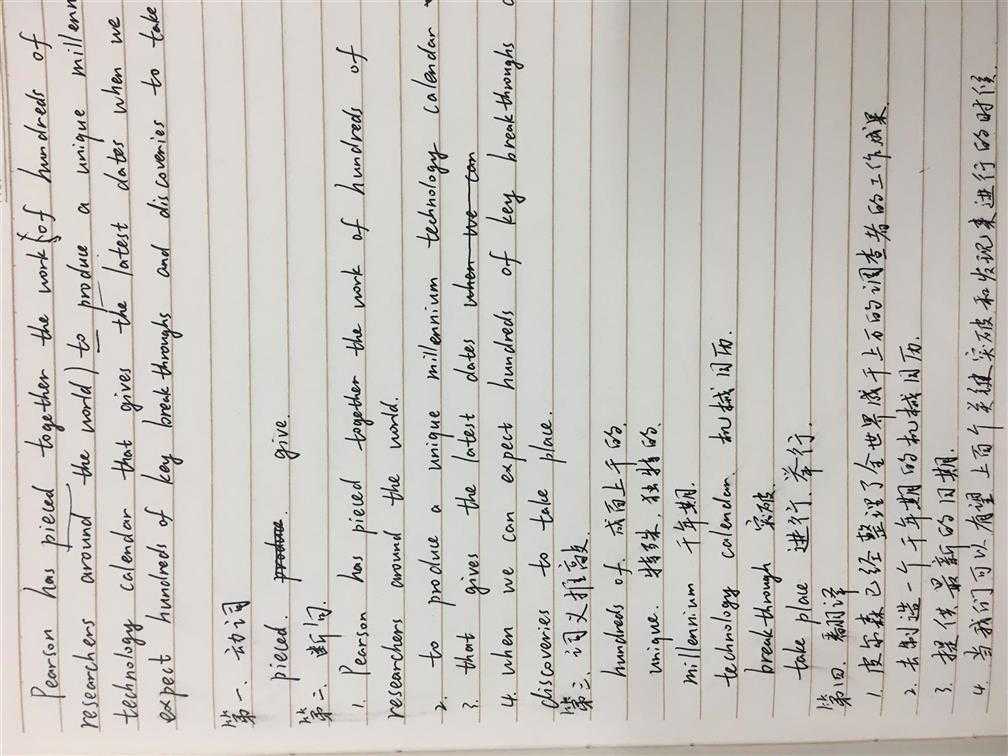 Pearson has pieced together the work (of hundreds of
researchers around the world) to produce a unique millenn
technology calendar that gives the latest dates when we
expect hundreds of key breakthroughs and discoveries to take
第一. 动词
pieced. produce. give.
第二. 断句.
1. Pearson has pieced together the work of hundreds of
researchers around the world.
2. to produce a unique millennium technology calendar
3. that gives the latest dates when we can
4. when we can expect hundreds of key breakthroughs
discoveries to take place.
第三. 词义推敲
hundreds of. 成百上千的.
unique. 特殊. 独特的.
millennium 千年期.
technology calendar. 机械日历.
breakthrough 突破.
take place 进行. 举行.
第四. 翻译
1. 皮尔森已经整理了全世界成千上万的调查者的工作成果.
2. 去制造一个千年期的机械日历.
3. 提供最新的日期.
4. 当我们可以有望上百个关键突破和发现来进行的时候.